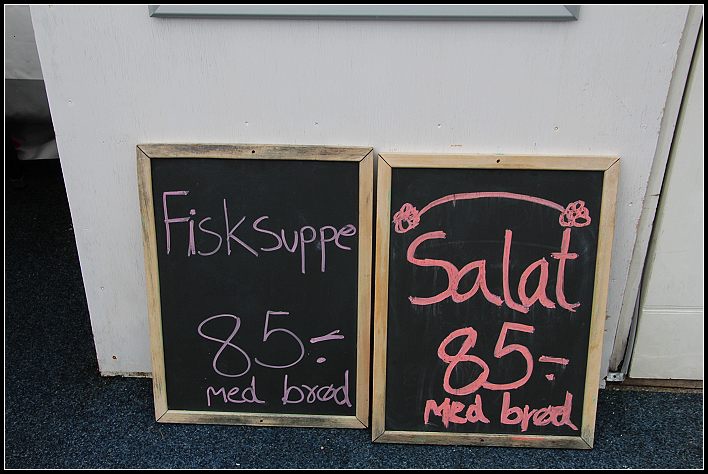 Fisksuppe
85:-
med brød
Salat
85:-
med brød